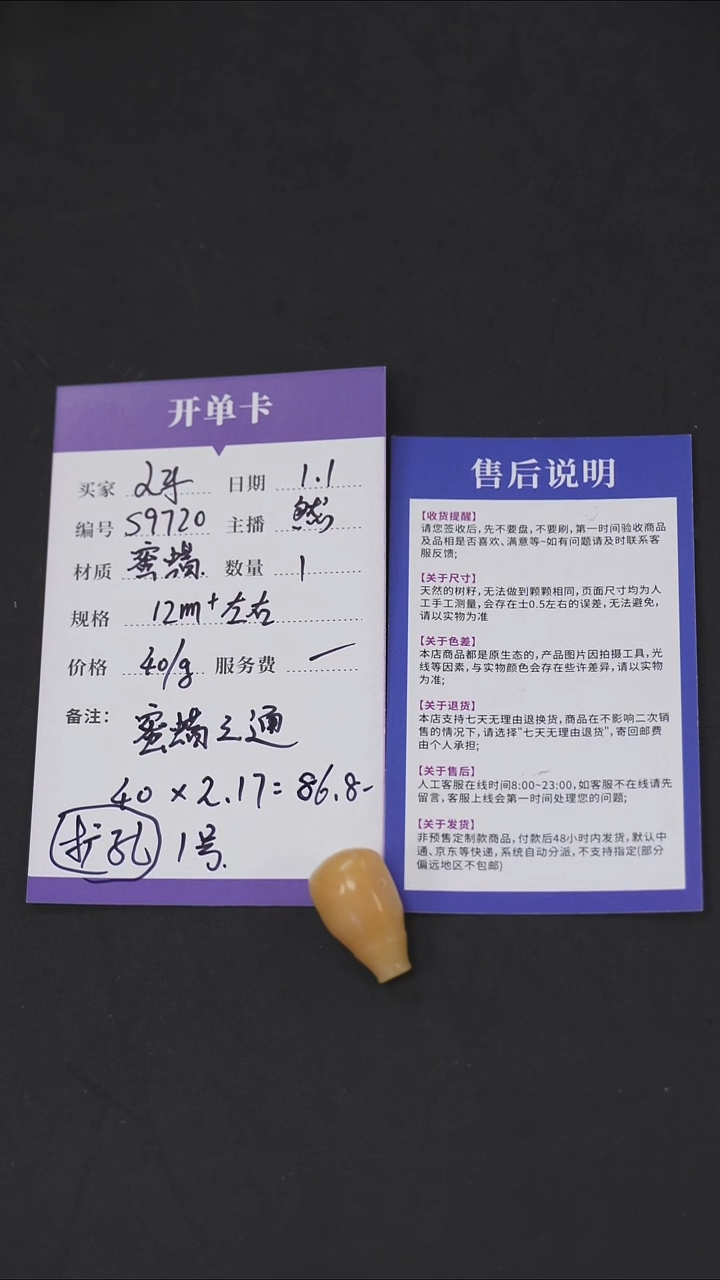 开单卡
买家 日期 1.1
编号 S9720 主播 然
材质 蜜蜡 数量 1
规格 12m+左右
价格 40/g 服务费 一
备注: 蜜蜡三通
40 × 2.17 = 86.8-
扩孔 1号.
售后说明
【收货提醒】
请您签收后,先不要盘,不要刷,第一时间验收商品
及品相是否喜欢、满意等~如有问题请及时联系客
服反馈;
【关于尺寸】
天然的树籽,无法做到颗颗相同,页面尺寸均为人
工手工测量,会存在士0.5左右的误差,无法避免,
请以实物为准
【关于色差】
本店商品都是原生态的,产品图片因拍摄工具,光
线等因素,与实物颜色会存在些许差异,请以实物
为准;
【关于退货】
本店支持七天无理由退换货,商品在不影响二次销
售的情况下,请选择"七天无理由退货",寄回邮费
由个人承担;
【关于售后】
人工客服在线时间8:00~23:00,如客服不在线请先
留言,客服上线会第一时间处理您的问题;
【关于发货】
非预售定制款商品,付款后48小时内发货,默认中
通、京东等快递,系统自动分派,不支持指定(部分
偏远地区不包邮)